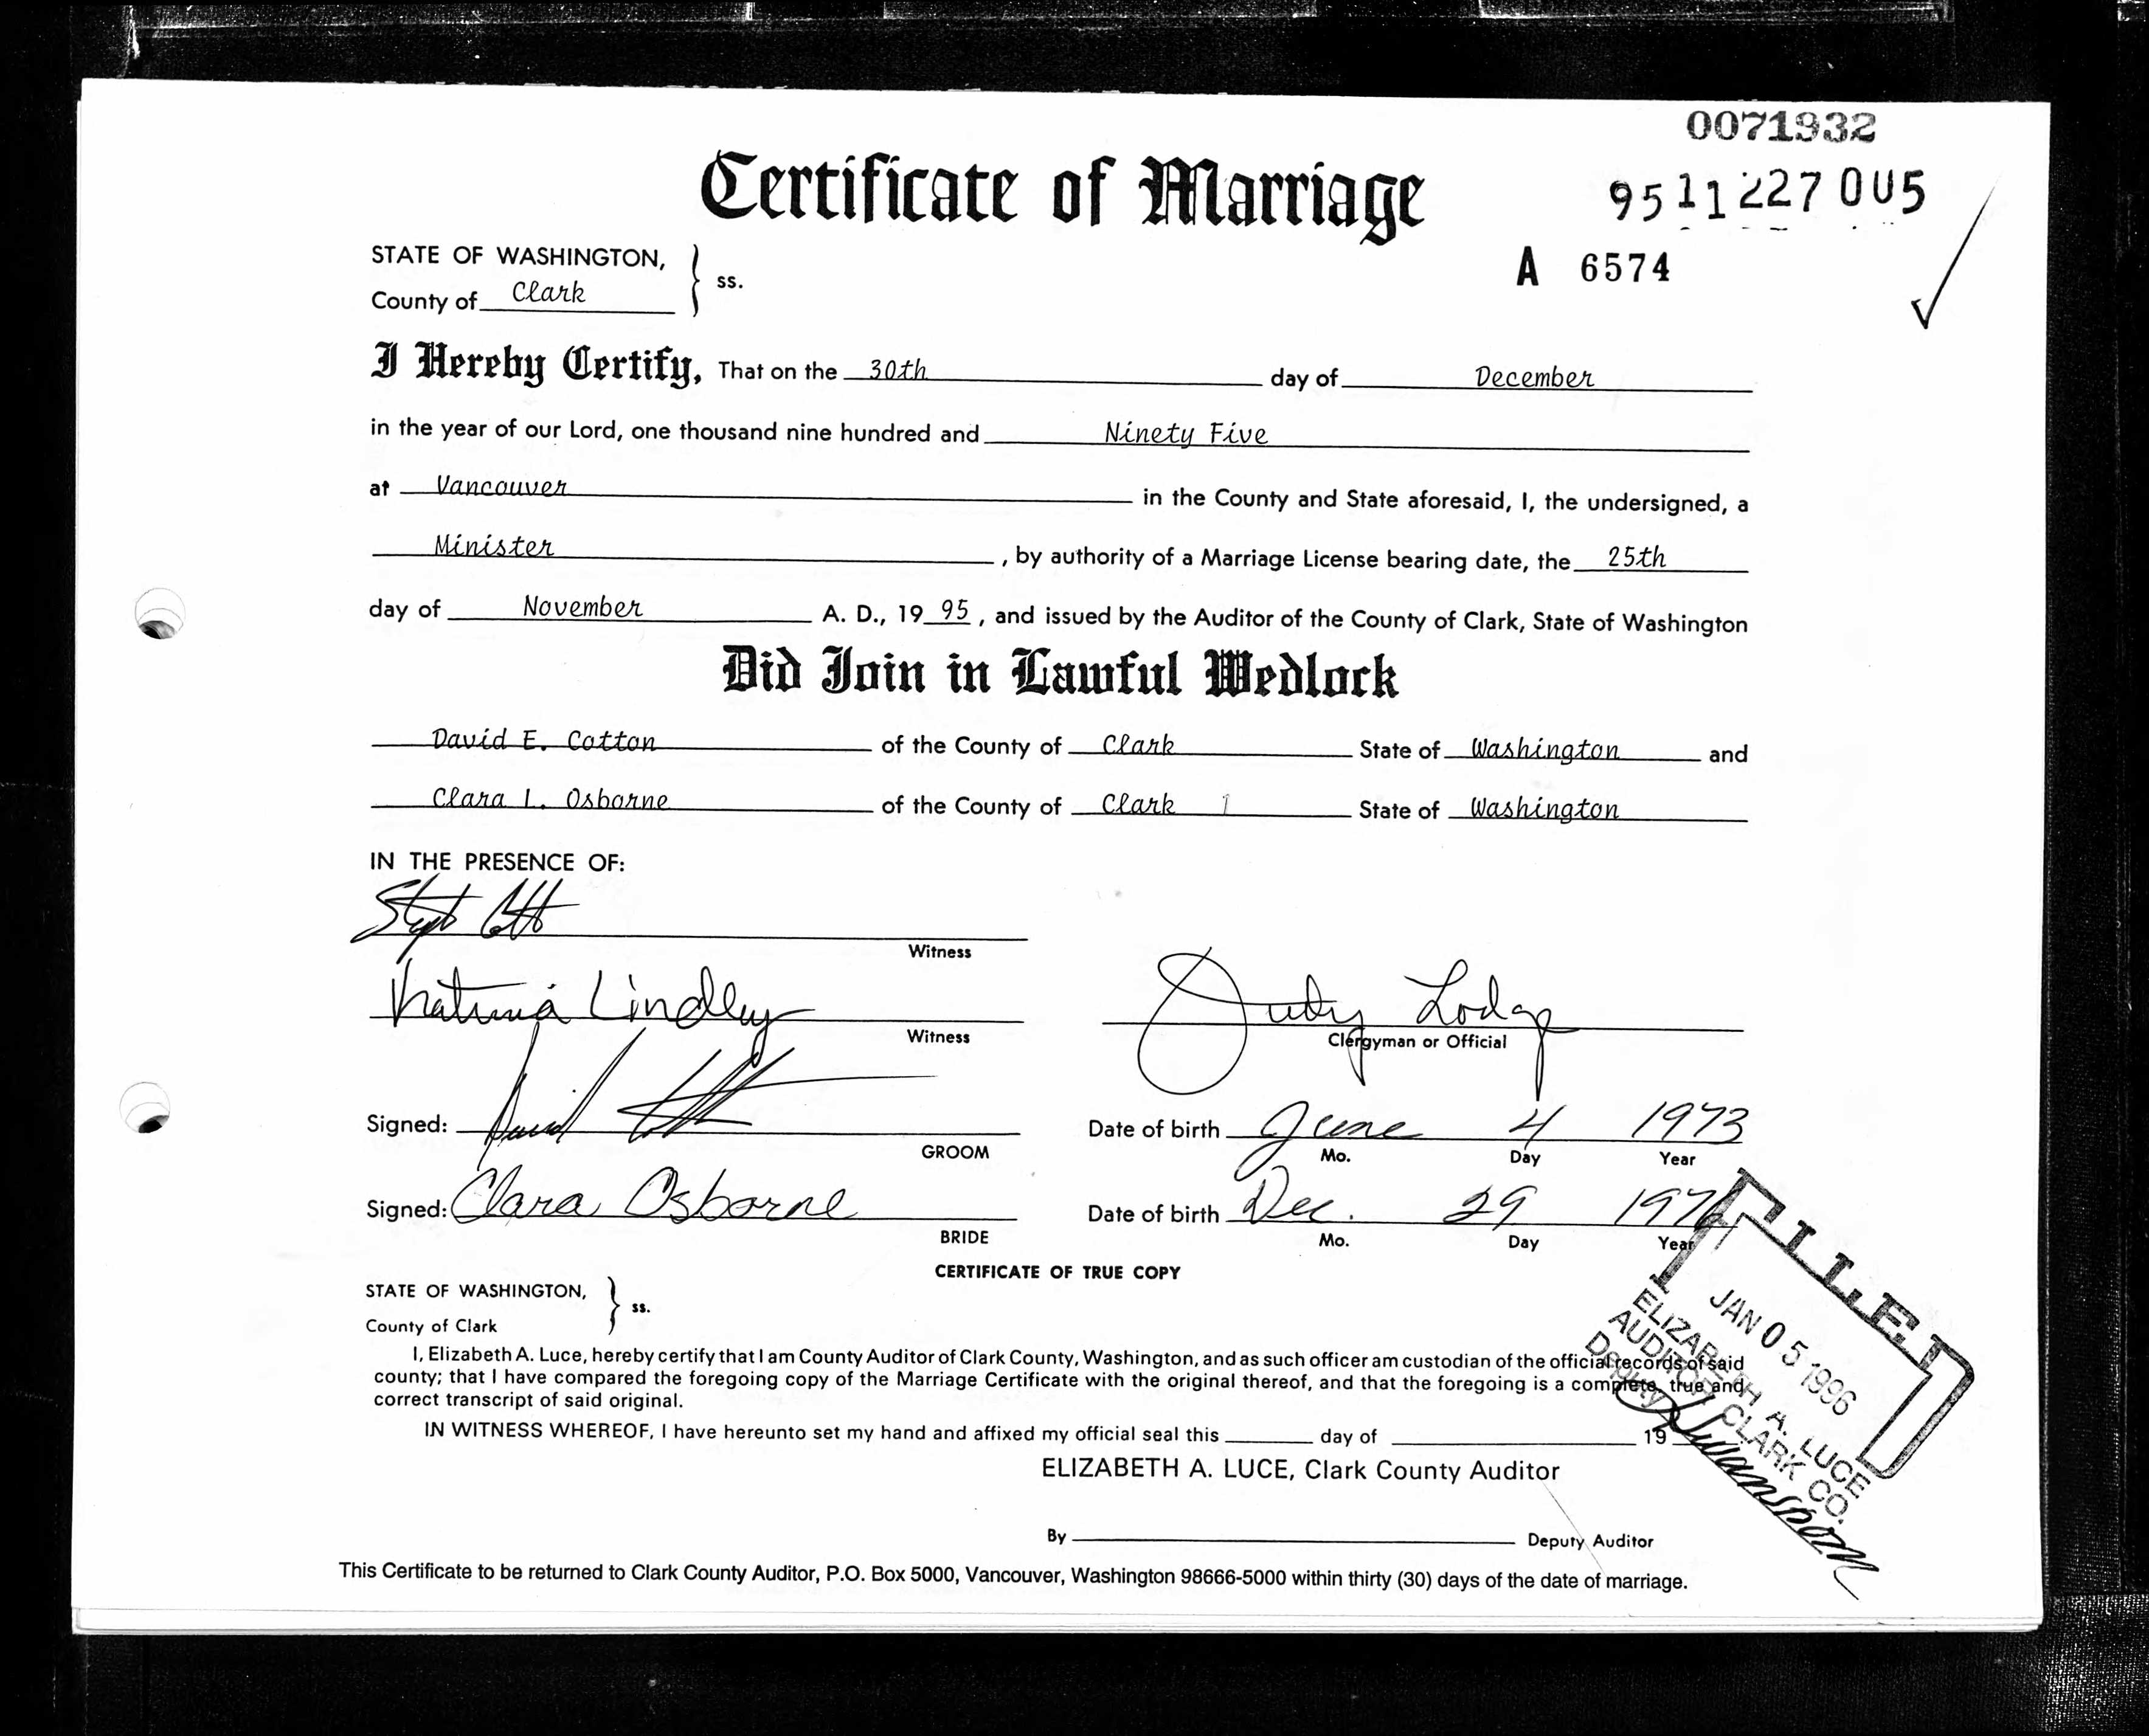 0071932
Certificate of Marriage
9511227005
STATE OF WASHINGTON, } ss.
A 6574
County of Clark
I Hereby Certify, That on the 30th day of December
in the year of our Lord, one thousand nine hundred and Ninety Five
at Vancouver in the County and State aforesaid, I, the undersigned, a
Minister, by authority of a Marriage License bearing date, the 25th
day of November A. D., 19 95, and issued by the Auditor of the County of Clark, State of Washington
Did Join in Lawful Wedlock
David E. Cotton of the County of Clark State of Washington and
Clara L. Osborne of the County of Clark State of Washington
IN THE PRESENCE OF:
Witness
Katrina Lindley
Witness
Judy Lodge
Clergyman or Official
Signed: David Date of birth June 4 1973
GROOM Mo. Day Year
Signed: Clara Osborne Date of birth Dec. 29
BRIDE Mo. Day Year
CERTIFICATE OF TRUE COPY
STATE OF WASHINGTON, } ss.
County of Clark
I, Elizabeth A. Luce, hereby certify that I am County Auditor of Clark County, Washington, and as such officer am custodian of the official records of said
county; that I have compared the foregoing copy of the Marriage Certificate with the original thereof, and that the foregoing is a complete, true and
correct transcript of said original.
IN WITNESS WHEREOF, I have hereunto set my hand and affixed my official seal this day of 19
ELIZABETH A. LUCE, Clark County Auditor
By Deputy Auditor
This Certificate to be returned to Clark County Auditor, P.O. Box 5000, Vancouver, Washington 98666-5000 within thirty (30) days of the date of marriage.
FILED
JAN 05 1996
ELIZABETH A. LUCE
AUDITOR CLARK CO.
Deputy